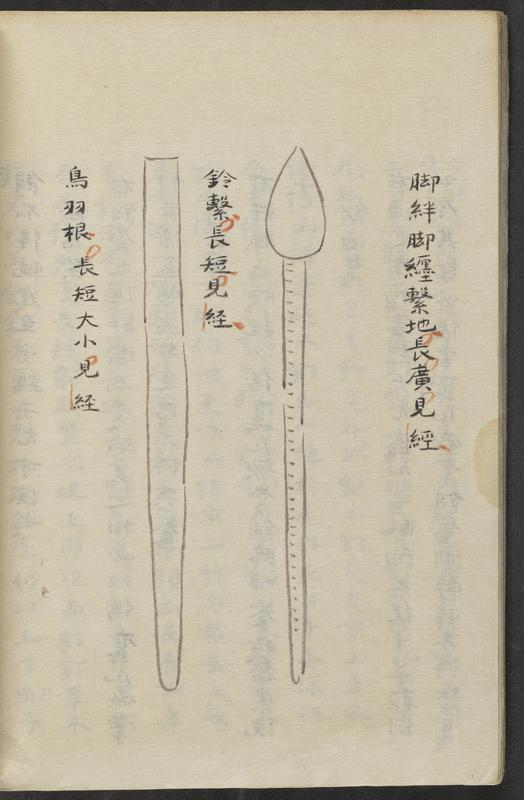 脚絆脚纏繋地長廣見經
鈴繋長短見経
鳥羽根長短大小見経